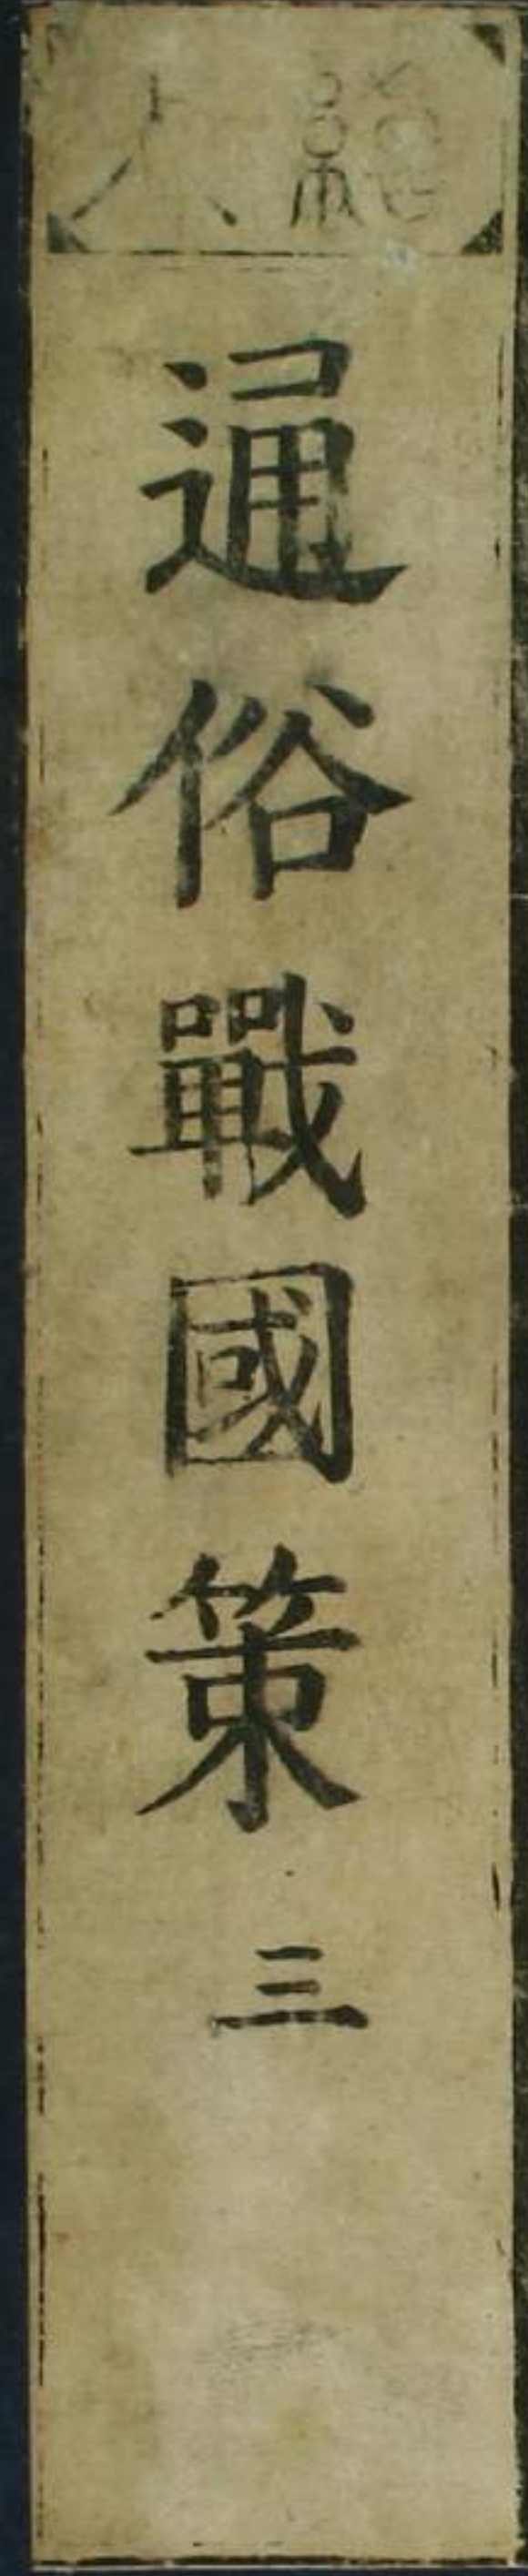 繪入
通俗戰國策
三